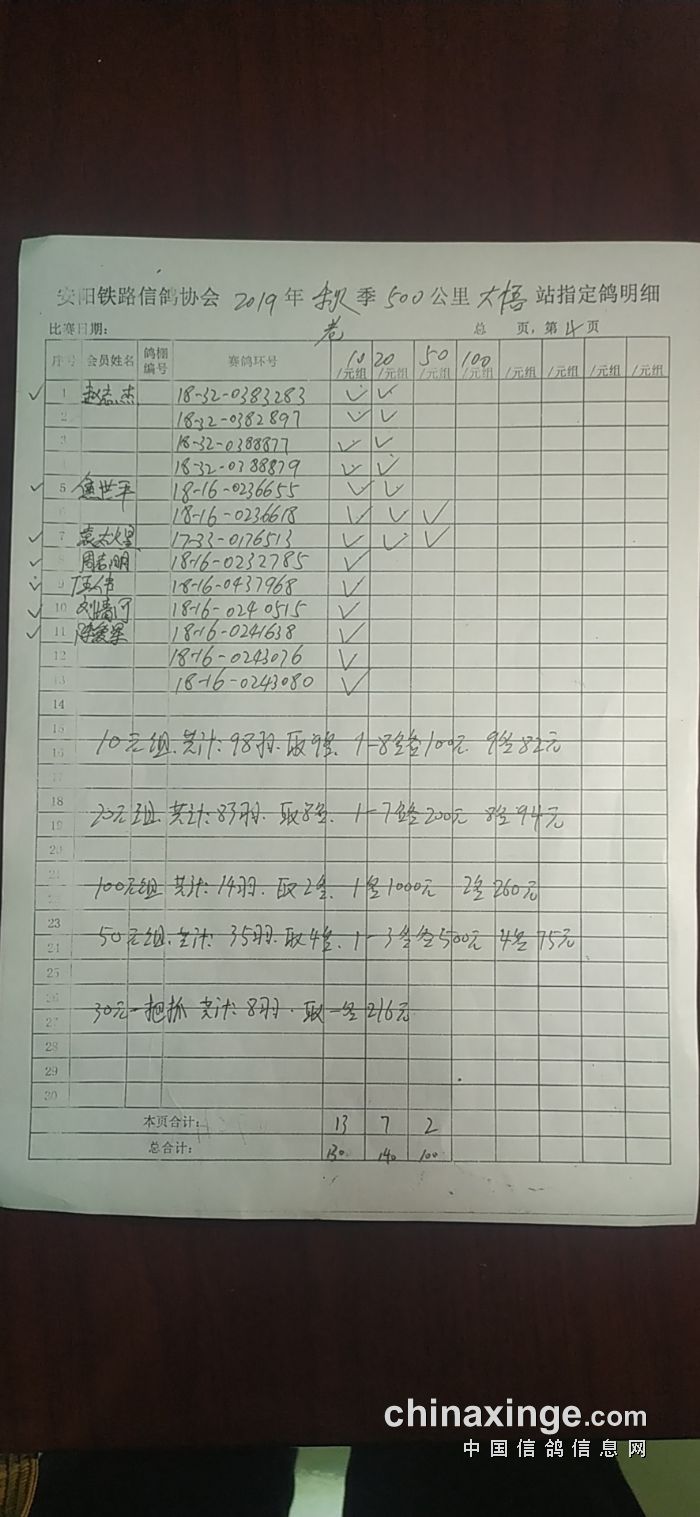 安阳铁路信鸽协会 2019 年 秋 季 500 公里 大悟 站指定鸽明细
比赛日期: 总 页, 第 4 页
序号 会员姓名 鸽棚编号 赛鸽环号 10/元组 20/元组 50/元组 100/元组 /元组 /元组 /元组 /元组
✓ 1 赵志杰 18-32-0383283 ✓ ✓
2 18-32-0382897 ✓ ✓
3 18-32-0388877 ✓ ✓
4 18-32-0388879 ✓ ✓
✓ 5 焦世平 18-16-0236655 ✓ ✓
6 18-16-0236618 ✓ ✓ ✓
✓ 7 17-33-0176513 ✓ ✓ ✓
✓ 8 周志明 18-16-0232785 ✓
9 18-16-0437968 ✓
✓ 10 刘清河 18-16-0240515 ✓
✓ 11 18-16-0241638 ✓
12 18-16-0243076 ✓
13 18-16-0243080 ✓
14
15
10元组.共计:98羽.取9名.1-8名各100元 9名82元
16
17
18
20元组.共计:83羽.取8名.1-7名各200元 8名94元
19
20
21
100元组 共计:14羽.取2名.1名1000元 2名260元
22
23
50元组.共计:35羽.取4名.1-3名各500元 4名75元
24
25
26
30元一把抓 共计:8羽.取一名216元
27
28
29
30
本页合计: 13 7 2
总合计: 130 140 100
chinaxinge.com
中国信鸽信息网